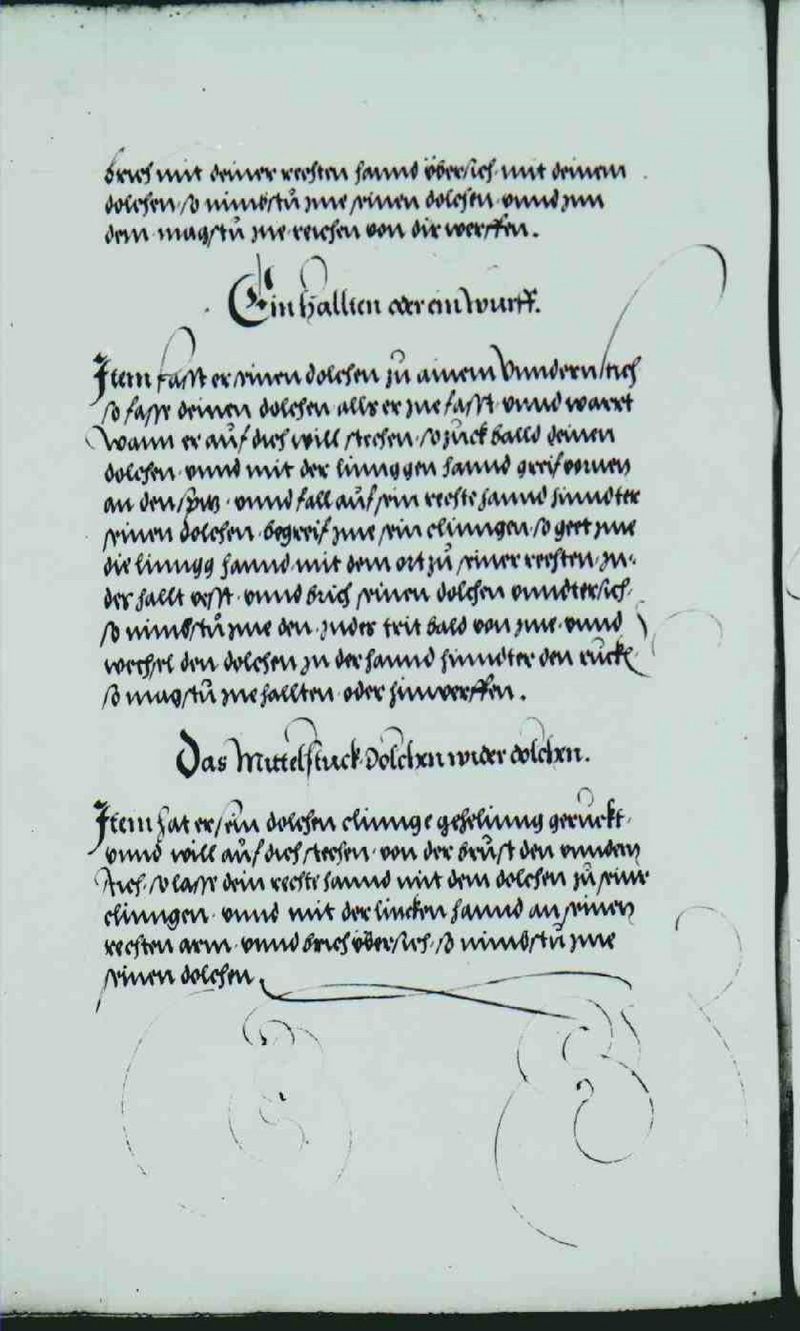 brich mit deiner rechten hannd ÿbersich mit deinem
dolchen, so nimbstů jme seinen dolchen vnnd jnn
dem magstů jne reichen von dir werffen.
Ein hallten oder ein wurff.
Item fasst er seinen dolchen zů ainem Vnndern stich
so fasse deinen dolchen alls er jne fasst vnnd wartt
Wann er aůf dich will stechen, so zůck balld deinen
dolchen, vnnd mit der linnggen hannd greif vornen
an den spitz, vnnd fall aůf sein rechte hannd hinndter
seinen dolchen, begreif jme sein clinngen, so geet jme
die linngg hannd mit dem ort zů seiner rechten, jn
der hallt vesst, vnnd brich seinen dolchen vnndtersich,
so nimbstů jme den, jndes trit bald von jme, vnnd
wechsel den dolchen jn der hannd hinndter den růck
so magstů jne hallten oder hinwerffen.
Das Mittelstuck Dolchen wider dolchen.
Item hat er sein dolchen clinnge gehelinng gerůckt,
vnnd will aůf dich stechen, von der brůst den vnndern
stich, so lasse dein rechte hannd mit dem dolchen zů seiner
clinngen, vnnd mit der lincken hannd an seinen
rechten arm, vnnd brich ÿbersich, so nimbstů jme
seinen dolchen.